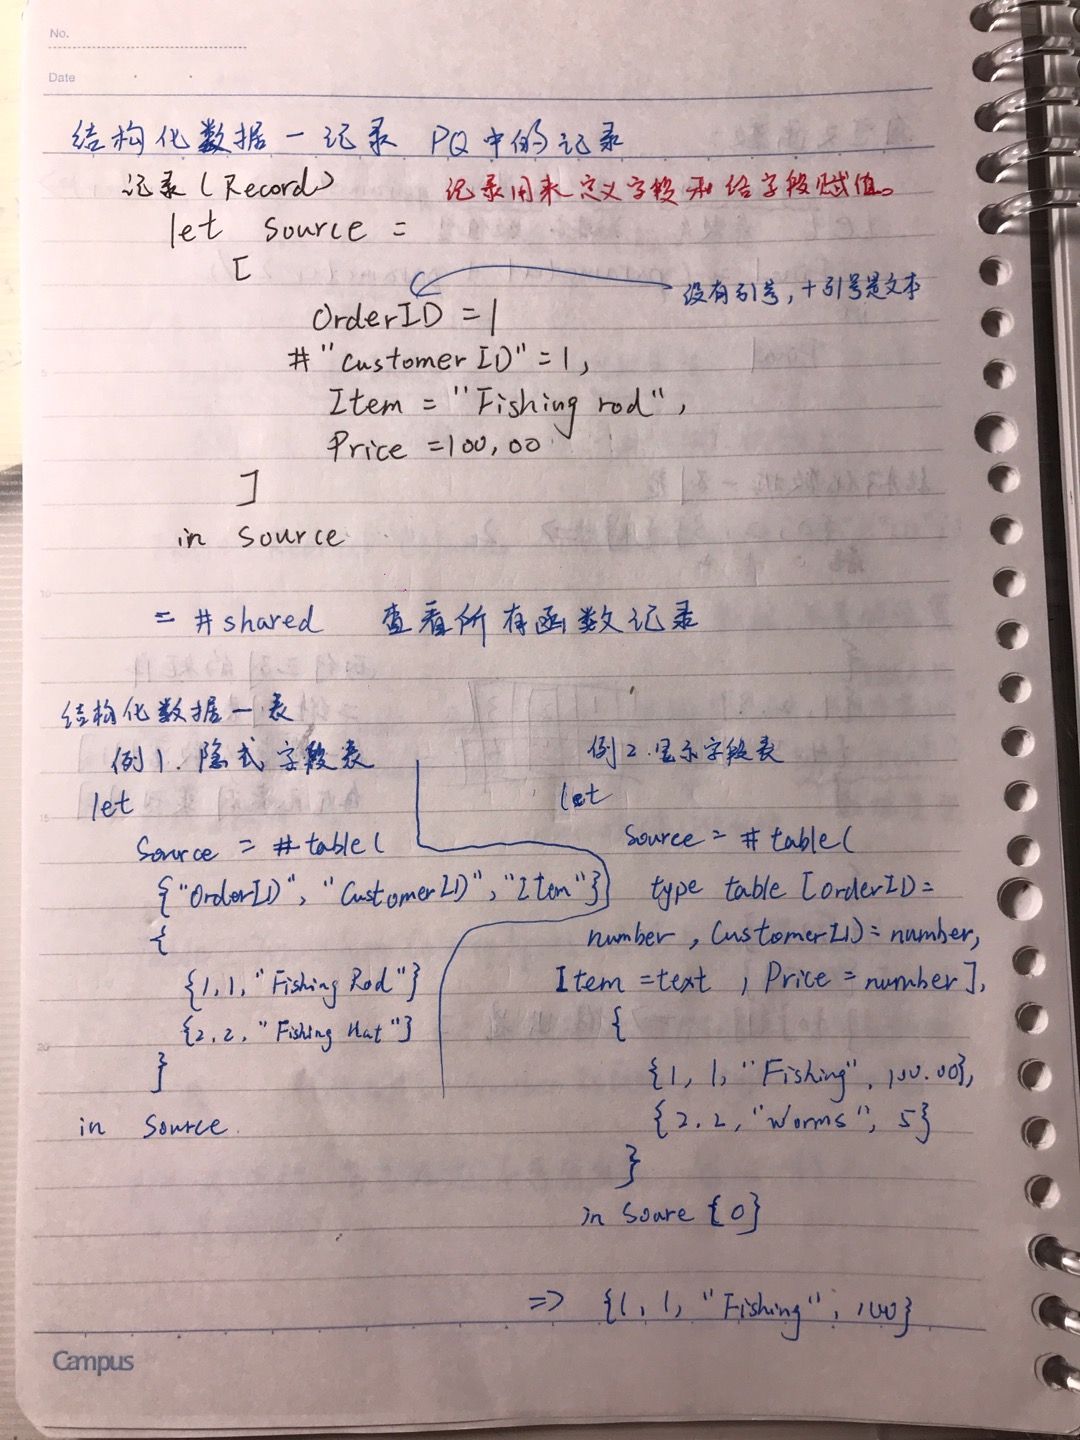 No.
Date
结构化数据-记录 PQ中的记录
记录(Record) 记录用来定义字段和给字段赋值。
let source =
[
没有引号,+引号是文本
OrderID = 1
#"Customer ID"=1,
Item = "Fishing rod",
Price =100,00
]
in source
= #shared 查看所有函数记录
结构化数据-表
例1.隐式字段表
let
Source = #table(
{"OrderID", "CustomerID","Item"}
{
{1,1,"Fishing Rod"}
{2,2,"Fishing Hat"}
}
in Source
例2.显示字段表
let
Source = #table(
type table [orderID=
number, CustomerID=number,
Item =text, Price = number],
{
{1, 1, "Fishing", 100.00},
{2, 2, "Worms", 5}
}
in Soure {0}
=> {1, 1, "Fishing", 100}
Campus